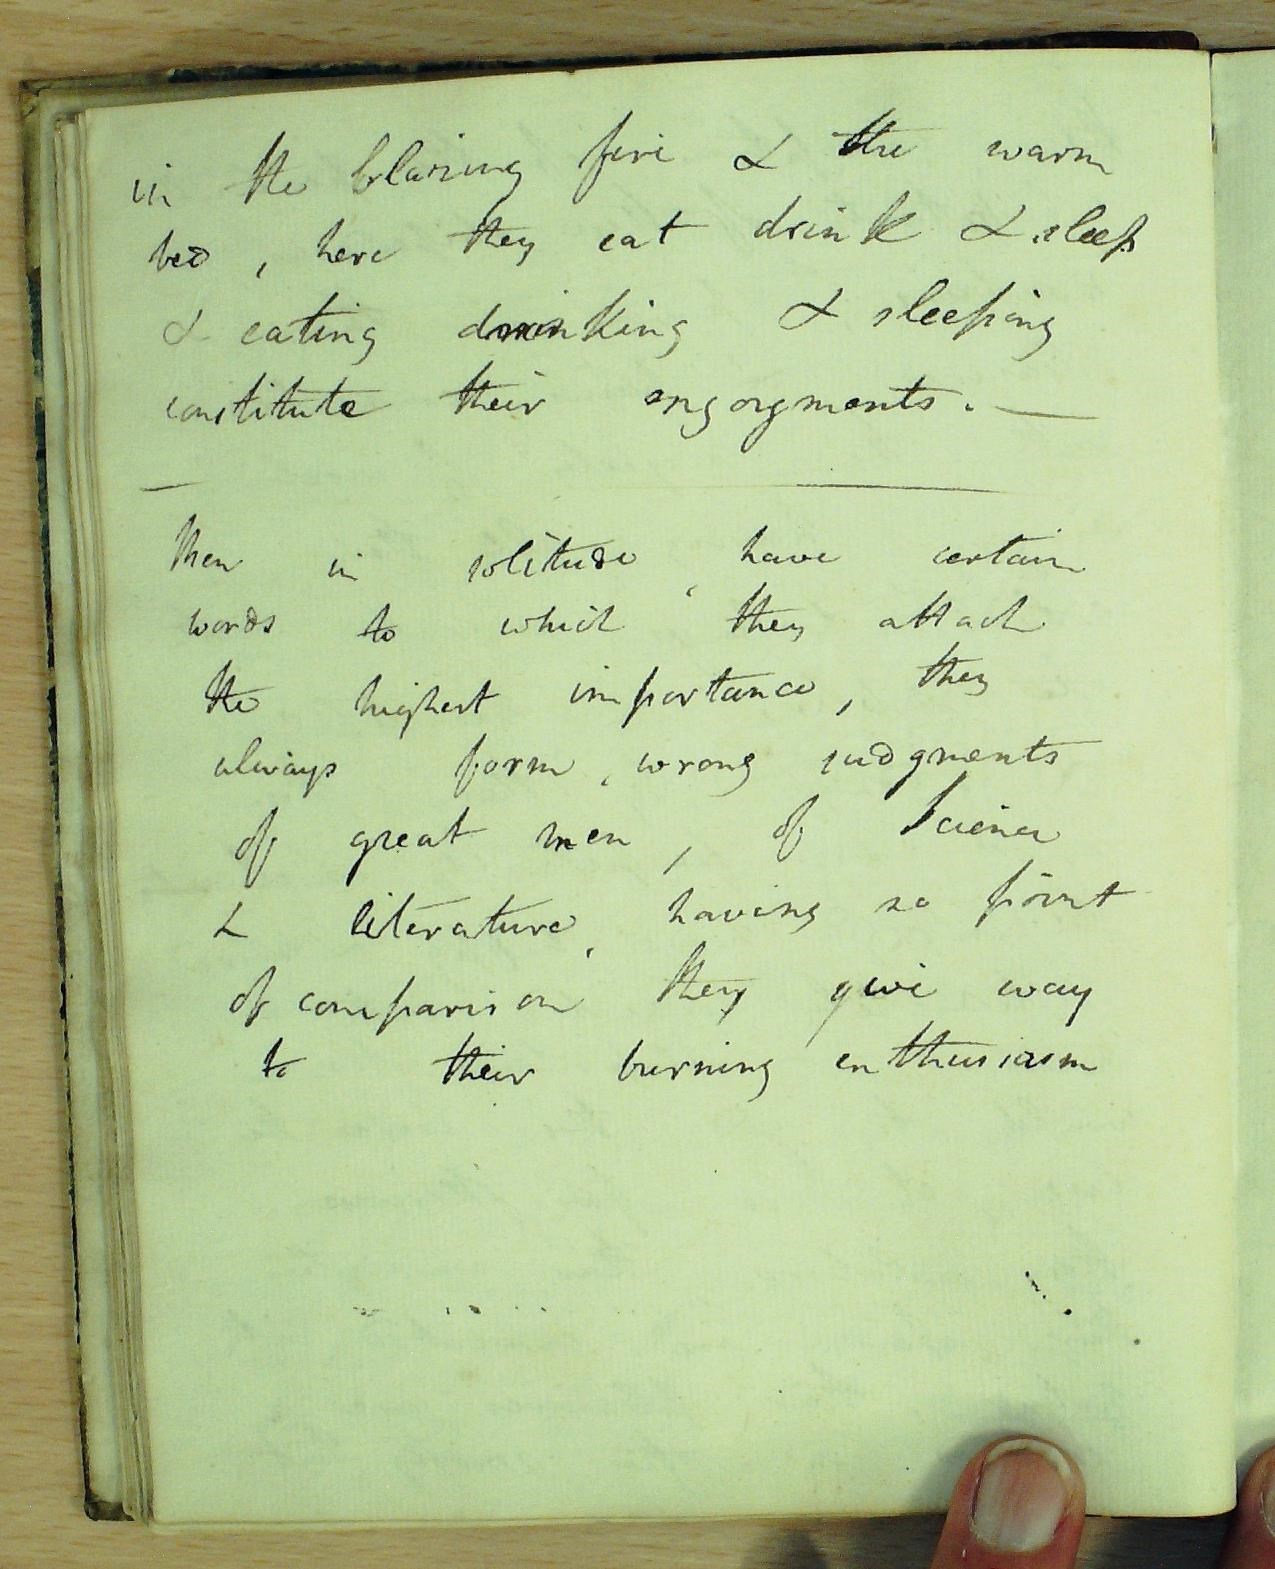 in the blazing fire & the warm
bed, here they eat drink & sleep
& eating drinking & sleeping
constitute their engorgments. —
Men in solitude, have certain
words to which they attach
the highest importance, they
always form, wrong judgments
of great men, of Science
& literature, having no point
of comparison they give way
to their burning enthusiasm